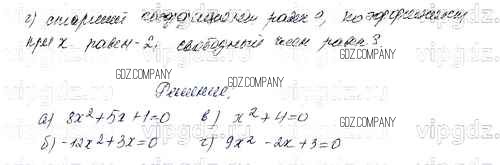 г) старший коэффициент равен 9, коэффициент
при x равен -2, свободный член равен 3.
GDZ.COMPANY GDZ.COMPANY
Решение.
GDZ.COMPANY
а) 8x²+5x+1=0 в) x²+4=0
б) -12x²+3x=0 г) 9x²-2x+3=0
GDZ.COMPANY